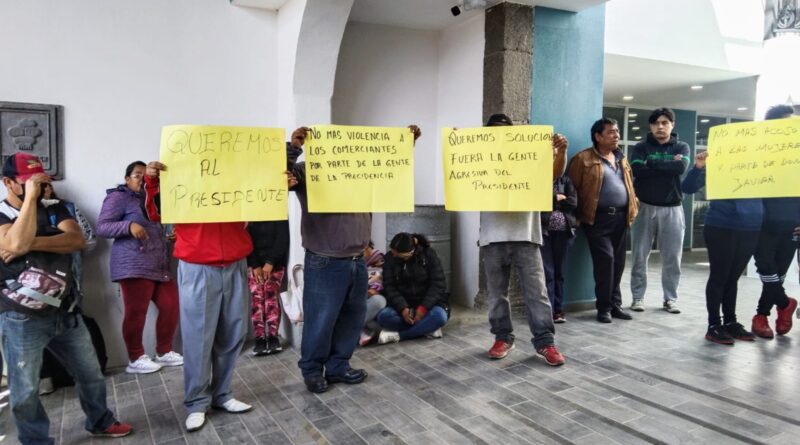 QUEREMOS
AL
PRESIDENTE
NO MAS VIOLENCIA A
LOS COMERCIANTES
POR PARTE DE LA GENTE
DE LA PRECIDENCIA
QUEREMOS SOLUCION
FUERA LA GENTE
AGRESIVA DEL
PRESIDENTE
NO MAS ACOJO
A LAS MUJERE
PARTE DE DON
JAVIER